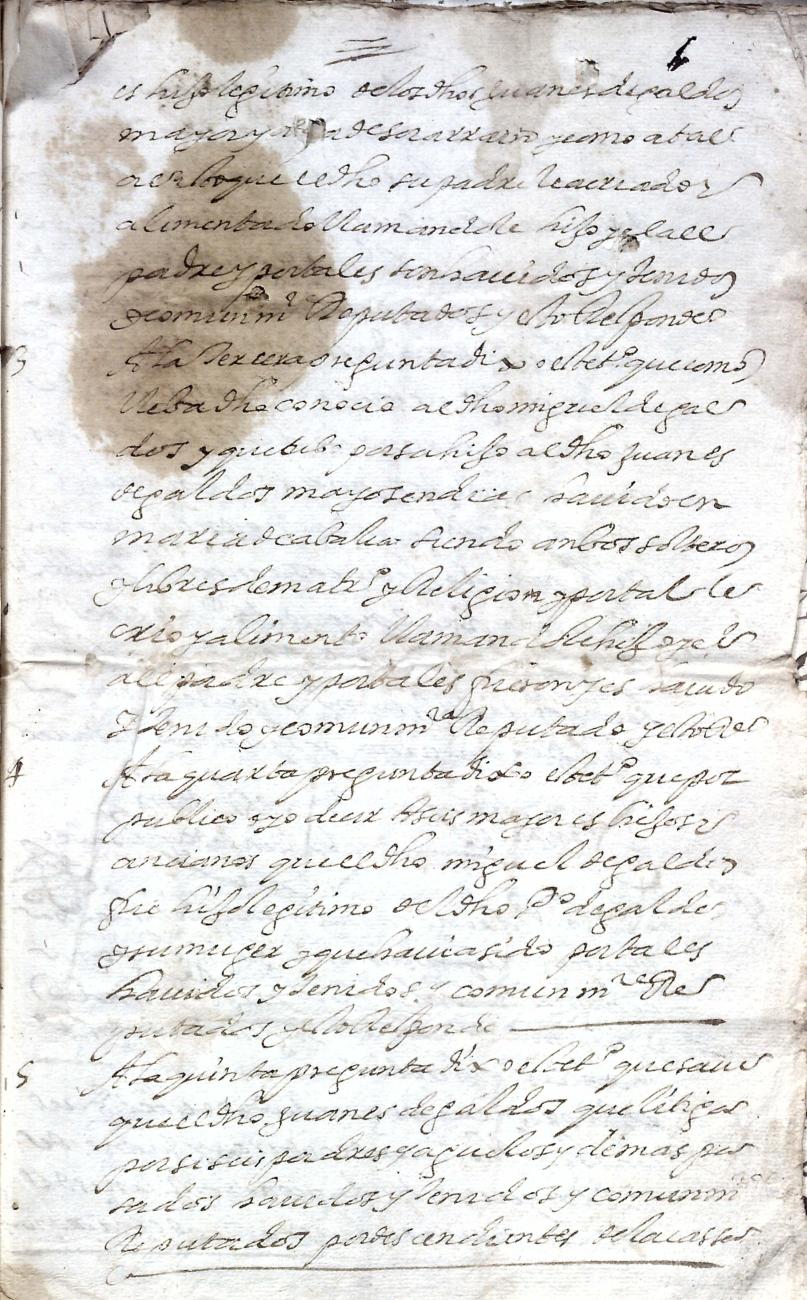 es hijo legitimo de los dhos Juanes de galdos
mayor y de escarrain y como a tal
a el dho su padre le a criado y
alimentado llamandole hijo y el a el
padre y por tales son havidos y tenidos
y comunmte Reputados y esto Responde
3 A la tercera pregunta dixo el tetº que como
lleba dho conocio a el dho miguel de gal
dos y que tubo por su hijo al dho Juanes
de galdos mayor en dias havido en
maria de cabalia siendo anbos solteros
y libres de matrº y Religion y por tal le
crio y alimento llamandole hijo y el
a el padre y por tales fueron y es havido
y tenido y comunmte Reputado y esto Res
4 A la quarta pregunta dixo el tetº que por
publico oyo decir a sus mayores hijos y
ancianos que el dho miguel de galdos
fue hijo legitimo del dho Pº de galdos
y su muger y que havia sido por tales
havidos y tenidos y comunmte Re
putados y esto Responde
5 A la quinta pregunta dixo el tetº que save
que el dho Juanes de galdos que litiga
por si sus padres y aguelos y demas pa
sados havidos y tenidos y comunmte
Reputados por descendientes de la cassa